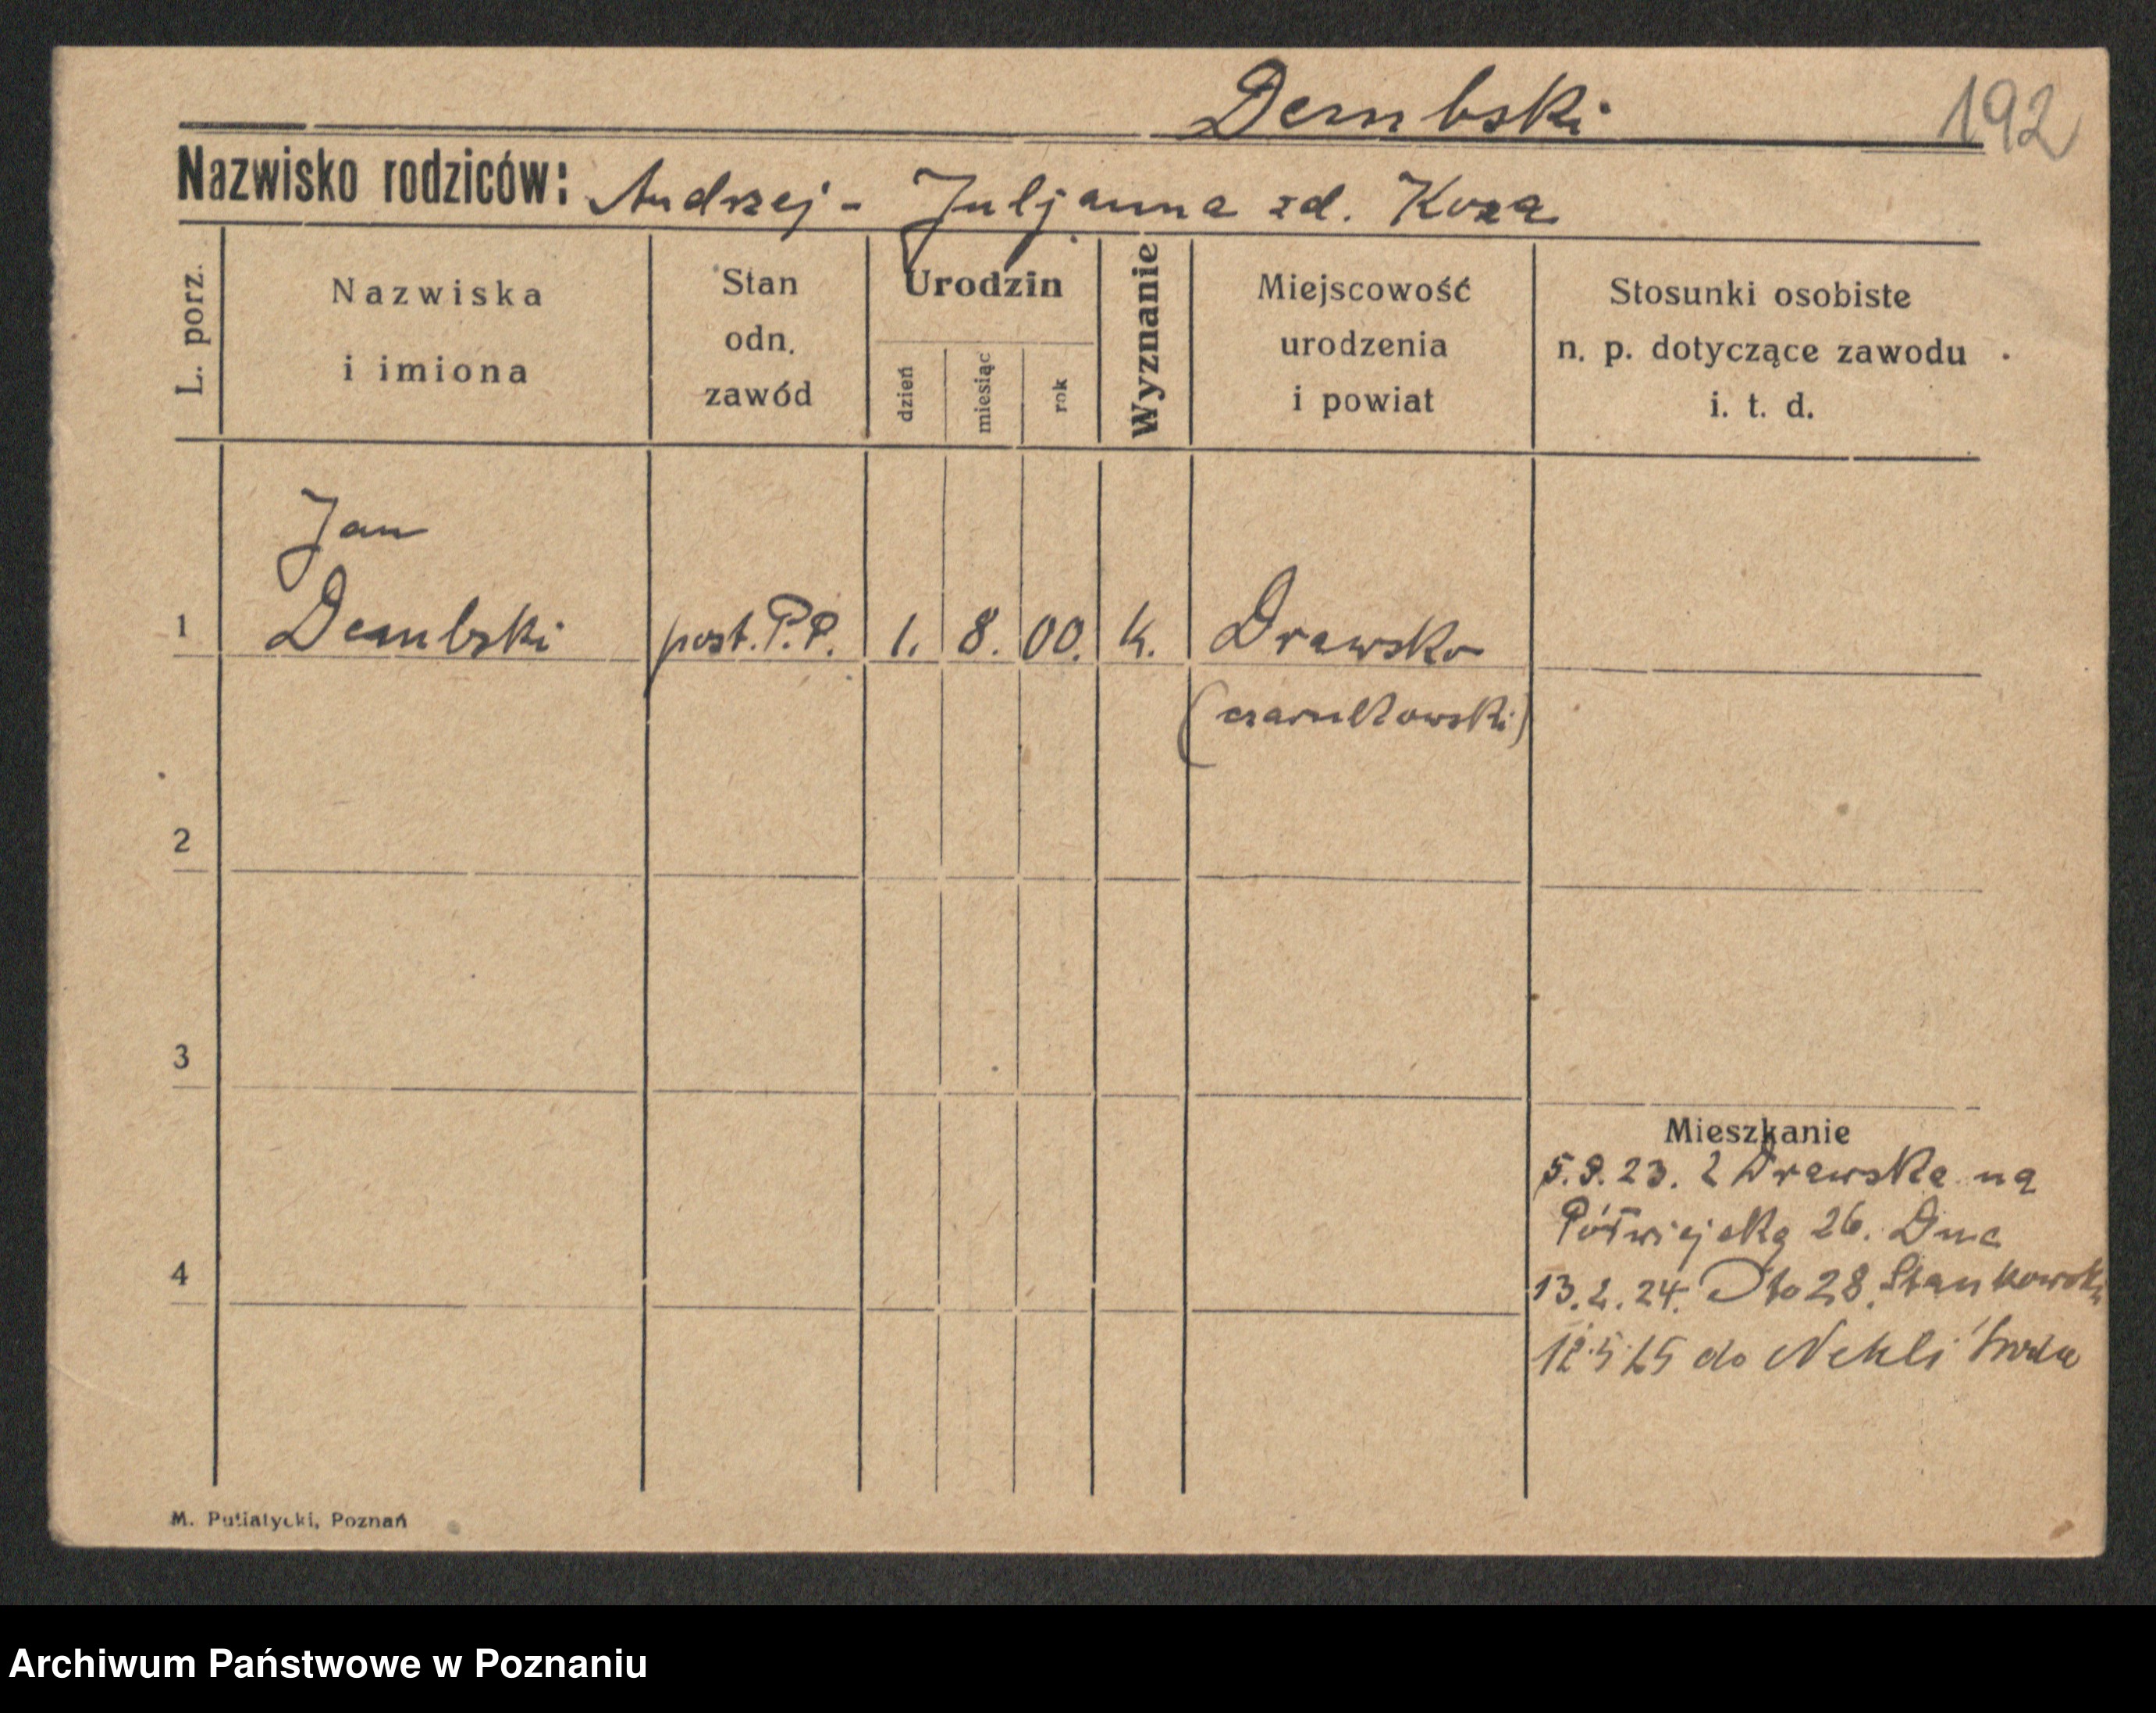 Dembski
192
Nazwisko rodziców: Andrzej - Juljanna zd. Koza
L. porz.
Nazwiska
i imiona
Stan
odn.
zawód
Urodzin
dzień
miesiąc
rok
Wyznanie
Miejscowość
urodzenia
i powiat
Stosunki osobiste
n. p. dotyczące zawodu
i. t. d.
Jan
1 Dembski post. P.P. 1. 8. 00. k. Drawsko
(czarnkowski)
2
3
4
Mieszkanie
5.9.23. z Drawska na
Półwiejską 26.
13.2.24. Dto 28. Stankowski
12.5.25 do Nekli Środa
M. Putiatycki, Poznań
Archiwum Państwowe w Poznaniu